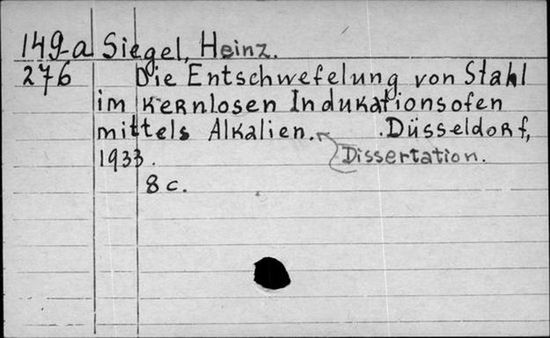 149-a Siegel, Heinz.
276 Die Entschwefelung von Stahl
im kernlosen Indukationsofen
mittels Alkalien. Düsseldorf,
1933. Dissertation.
8 c.